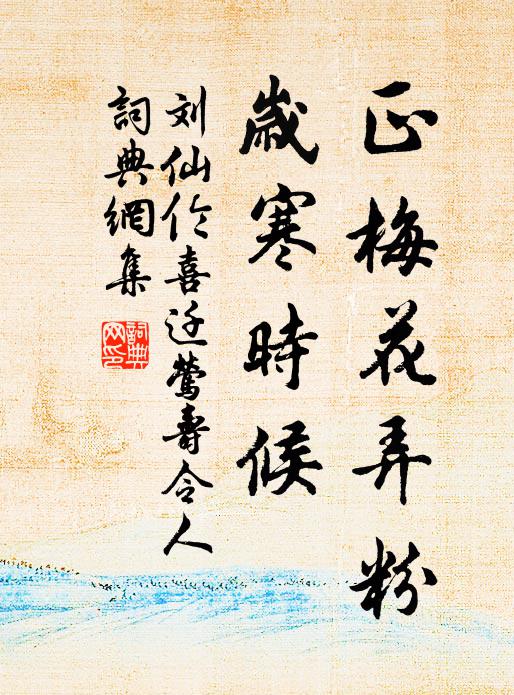 正梅花弄粉
歳寒時候
刘仙伦喜迁鶯壽令人
詞典網集
詞典
网印